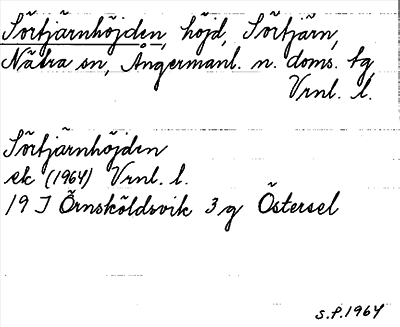 Sörtjärnhöjden, höjd, Sörtjärn,
Nätra sn, Ångermanl. n. doms. tg,
Vrnl. l.
Sörtjärnhöjden
ek (1964) Vrnl. l.
19 J Örnsköldsvik 3 g Östersel
S.P. 1964